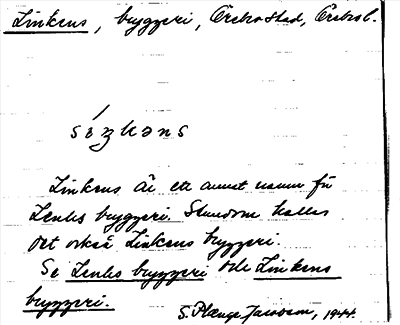 Linkens, bryggeri, Örebro stad, Örebro l.
Linkens är ett annat namn för
Lenles bryggeri. Stundom kallas
det också Linkens bryggeri.
Se Lenles bryggeri och Linkens
bryggeri.
S. Plænge Jacobson, 1944.